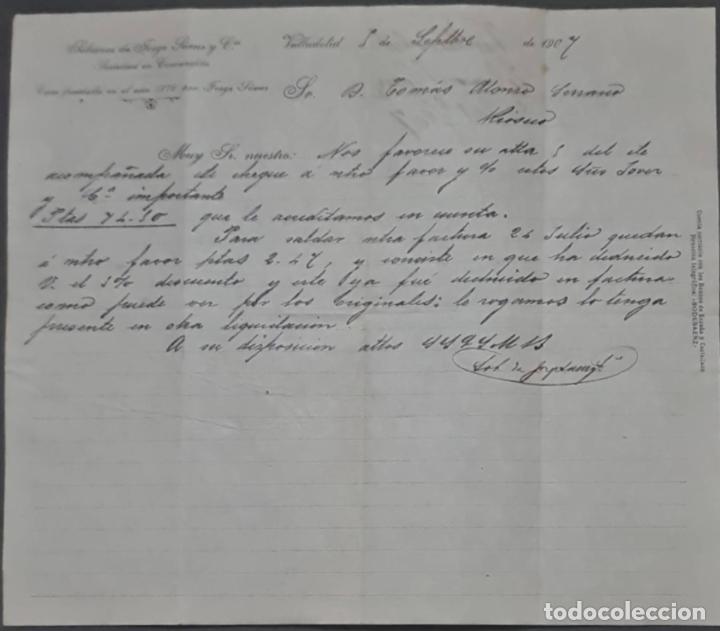 Sobrinos de Jorge Sáenz y Cía
Sociedad en Comandita
Casa fundada en el año 1876 por Jorge Sáenz
Valladolid 5 de Septbre de 1907
Sr. D. Tomás Alonso Serrano
Rioseco
Muy Sr. nuestro: Nos favorece su atta 5 del cte
acompañada de cheque a ntro favor y c/o Stos Tover
y Cª importante
Ptas 74-50 que le acreditamos en cuenta.
Para saldar ntra factura 24 Julio quedan
á ntro favor ptas 2.47, y consiste en que ha deducido
V. el 3% descuento y este ya fué deducido en factura
como puede ver por los originales; le rogamos lo tenga
presente en otra liquidación.
A su disposicion attos
Sob. de Jorge Saenz y Cª
Cuenta corriente con los Bancos de España y Castellano
Dirección telegráfica: «SODESAENZ»
todocoleccion.net